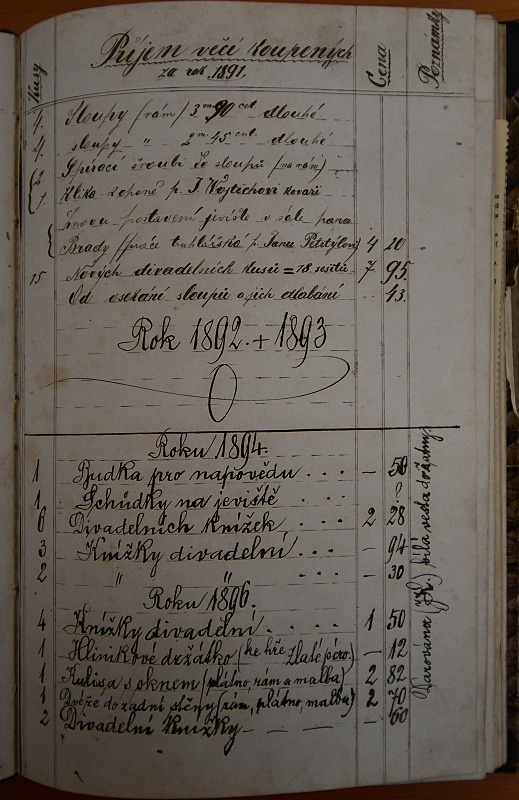 Kusy
Příjem věcí koupených
za rok 1891.
Cena
Poznámky
4. Sloupy (rám) 3 m 90 cnt. dlouhé
4. sloupy " 2 m. 45 cnt. dlouhé
2 šroubi do sloupů (na rám)
1. Klika p. J. Vojtěchovi kovaři
Znovu postavení jeviště v sále pana
Brady (práce truhlářská p. Janu ) 4 20
15 Nových divadelních kusů = 18. sešitů 7 95.
Od osekání sloupů a jich dlabání 43.
Rok 1892. + 1893
0
Roku 1894.
1 Budka pro nápovědu . . . – 50
1 Schůdky na jeviště . . . ?
6 Divadelních knížek . . . 2 28
3 Knížky divadelní . . . – 94
2 " " . . . – 30
Roku 1896.
4 Knížky divadelní . . . . 1 50
1 Hliníkové držátko (ke hře Zlaté péro.) – 12
1 Kulisa s oknem (plátno, rám a malba) 2 82
1 Dvéře do zadní stěny (rám, plátno, malba) 2 70
2 Divadelní knížky – – – – 60
bílá vesta